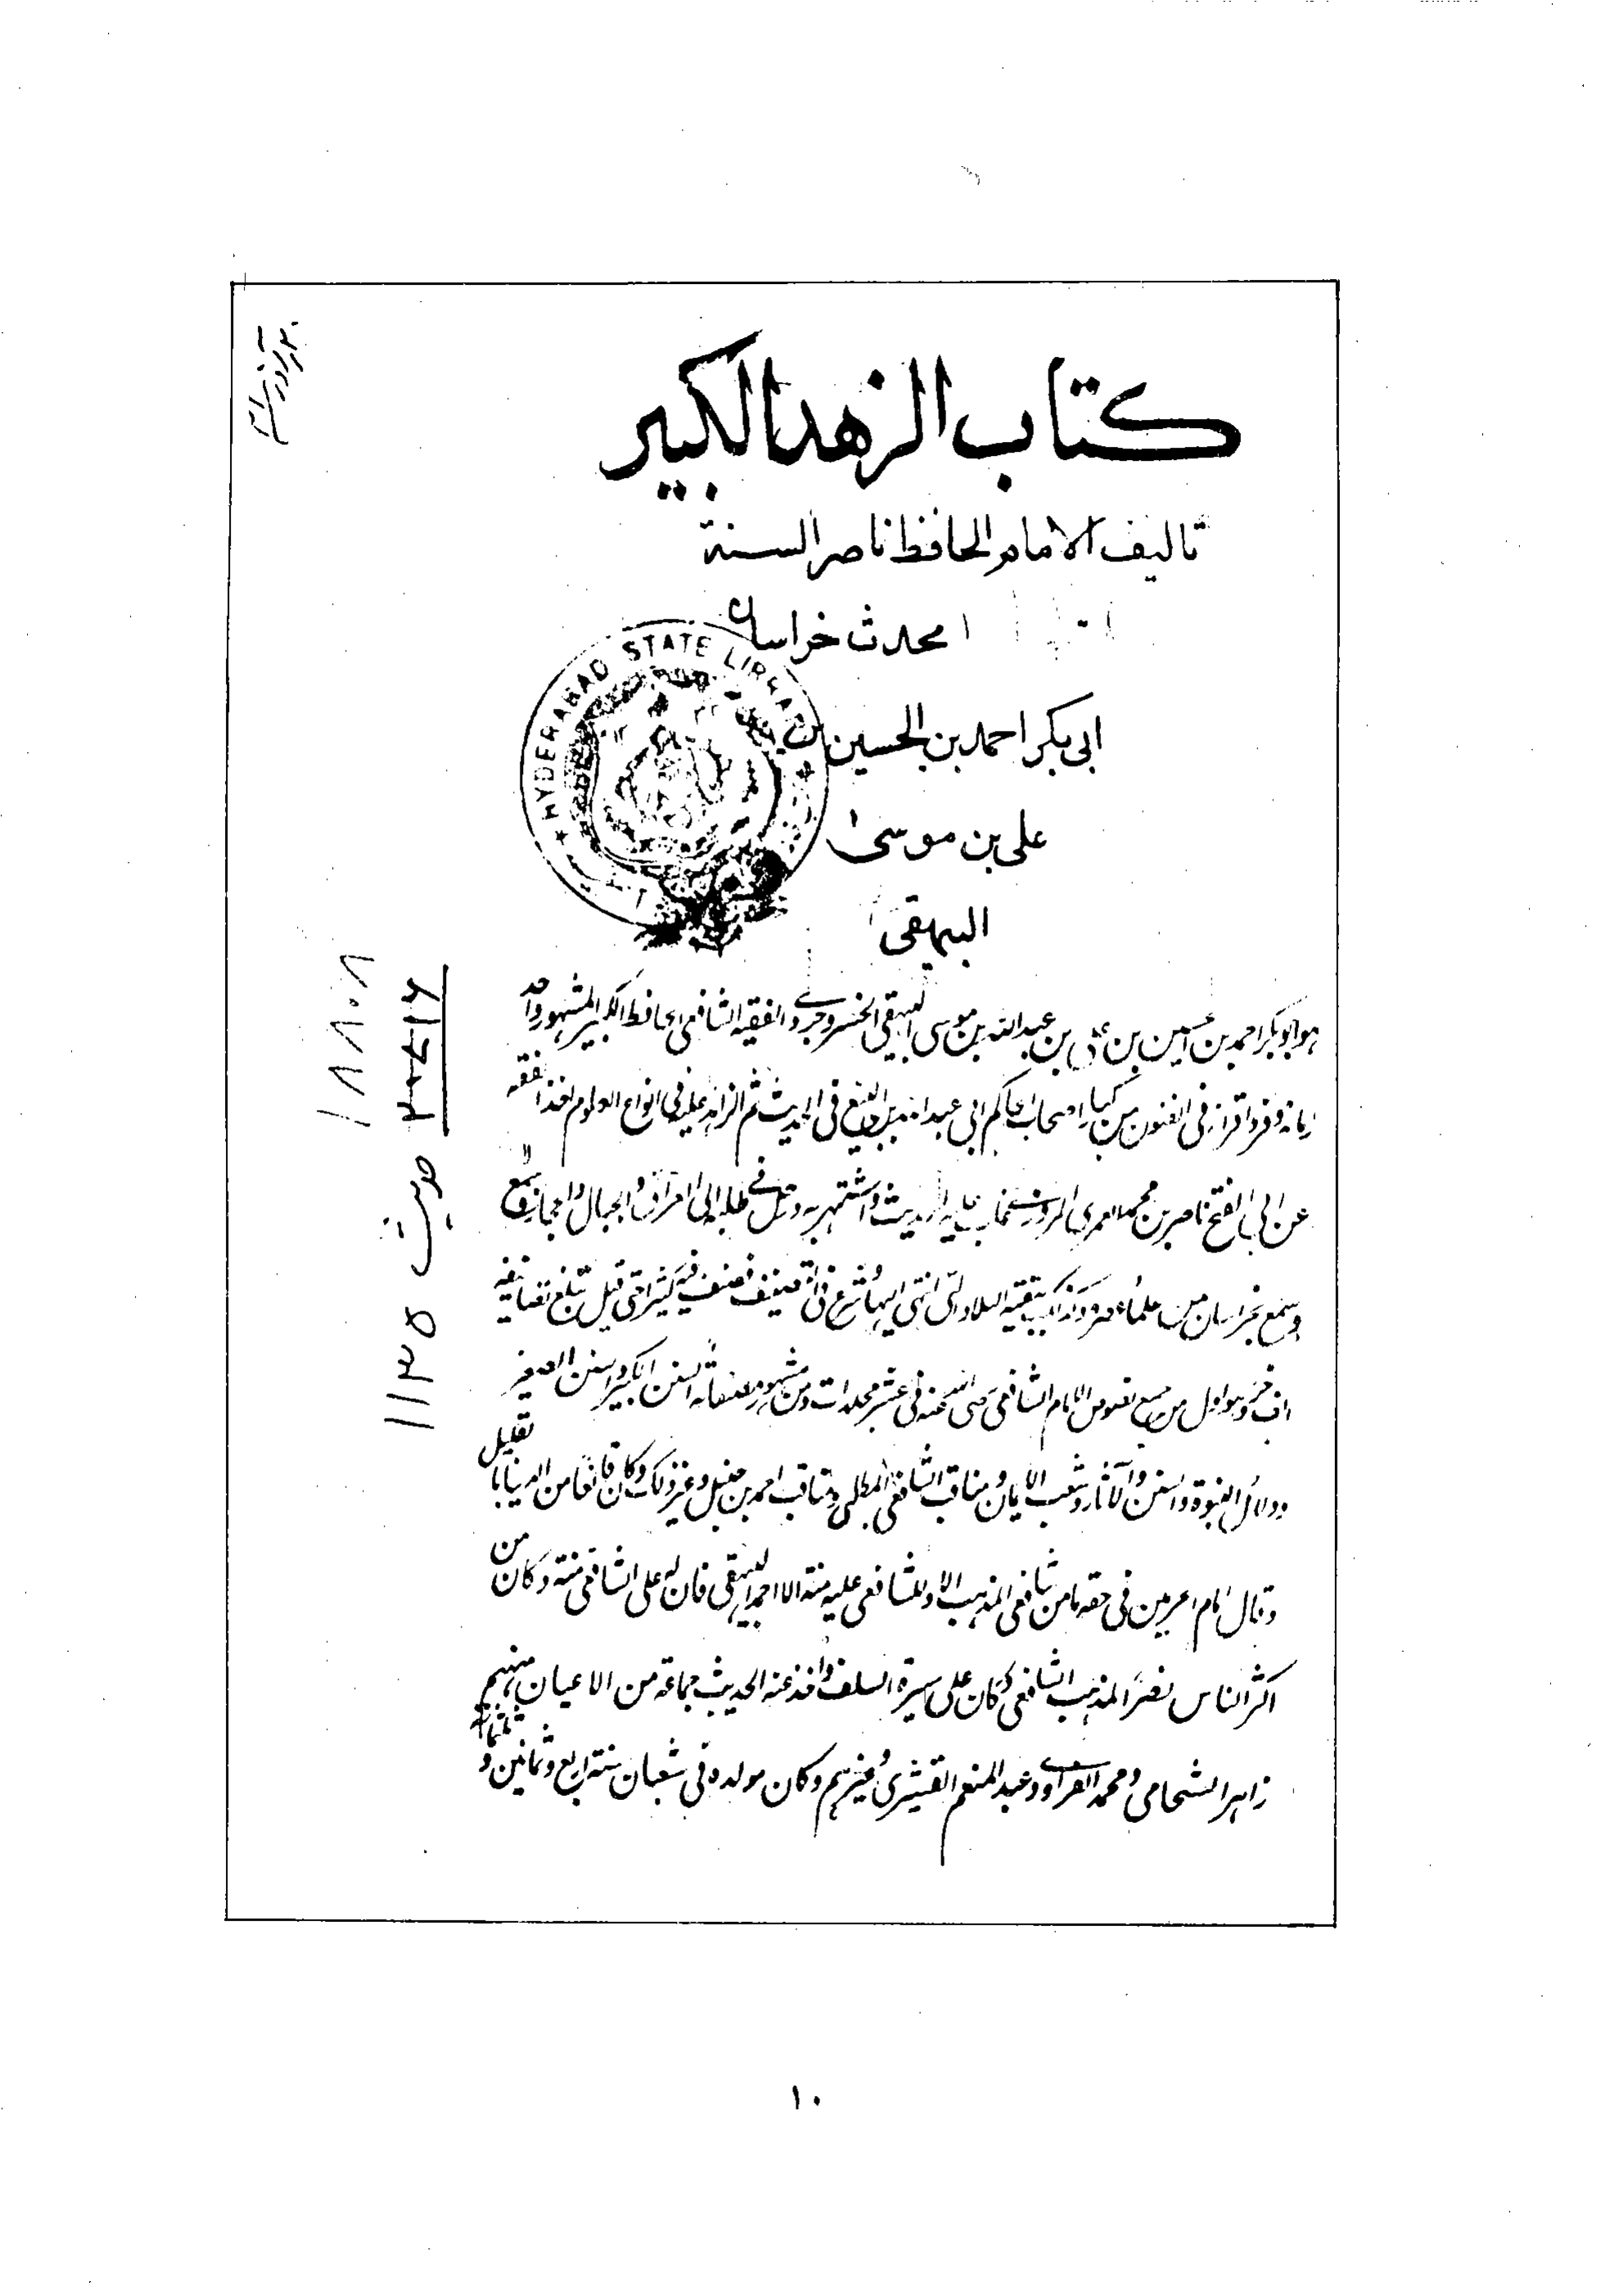 كتاب الزهد الكبير
تاليف الامام الحافظ ناصر السنة
محدث خراسان
ابي بكر احمد بن الحسين بن
علي بن موسىٰ
البيهقى
HYDERABAD STATE LIBRARY
هو ابو بكر احمد بن الحسين بن على بن عبد الله بن موسى البيهقي الخسروجردى الفقيه الشافعي الحافظ الكبير المشهور واحد
زمانه وفرد اقرانه في الفنون من كبار اصحاب الحاكم ابي عبد الله بن البيع في الحديث ثم الزائد عليه في انواع العلوم اخذ الفقه
عن ابي الفتح ناصر بن محمد العمرى المروزى غلب عليه الحديث واشتهر به ورحل في طلبه الى العراق والجبال والحجاز وسمع
وسمع بخراسان من علماء عصره وكذلك ببقية البلاد التي انتهى اليها وشرع في التصنيف فصنف فيه كثيرا حتى قيل تبلغ تصانيفه
الف جزء وهو اول من جمع نصوص الامام الشافعي رضى الله عنه في عشر مجلدات ومن مشهور مصنفاته السنن الكبير والسنن الصغير
ودلائل النبوة والسنن والآثار وشعب الايمان ومناقب الشافعي المطلبي ومناقب احمد بن حنبل وغير ذلك وكان قانعا من الدنيا بالقليل
وقال امام الحرمين في حقه ما من شافعي المذهب الا وللشافعي عليه منة الا احمد البيهقي فان له على الشافعي منة وكان من
اكثر الناس نصرًا لمذهب الشافعي وكان على سيرة السلف واخذ عنه الحديث جماعة من الاعيان منهم
زاهر الشحامي ومحمد الفراوى وعبد المنعم القشيرى وغيرهم وكان مولده في شعبان سنة اربع وثمانين وثلثمائة
١٨٨٠٨
حديث ١١٣٥
١٠